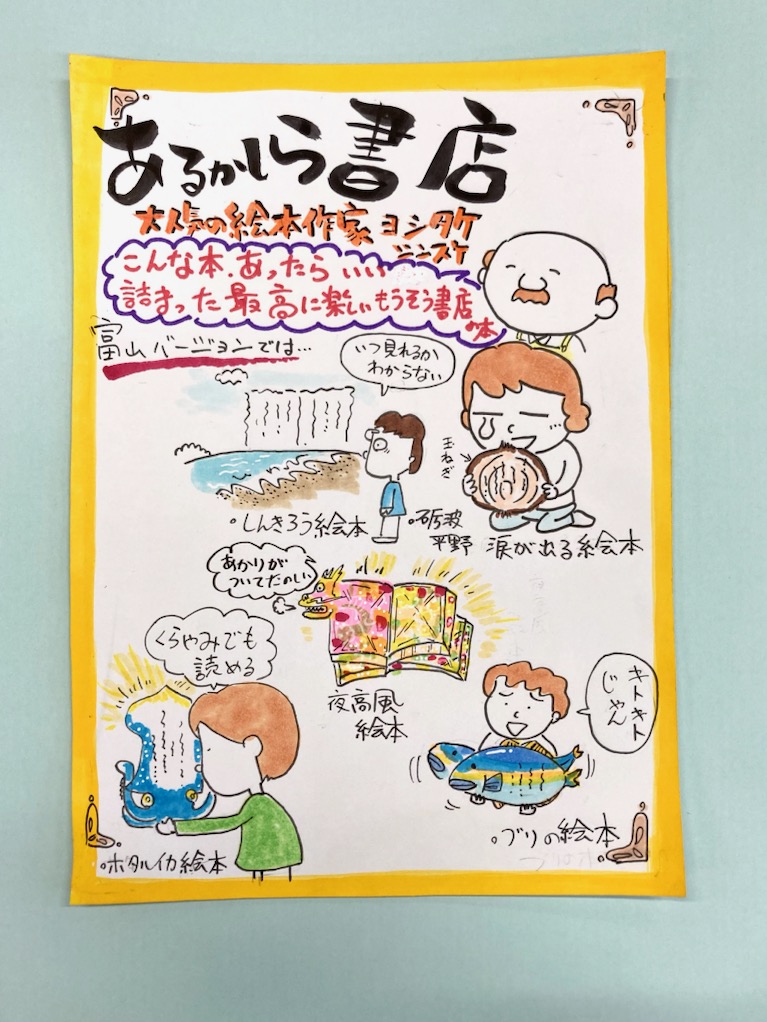 あるかしら書店
大人気の絵本作家 ヨシタケ
シンスケ
こんな本.あったら いい
詰まった最高に楽しいもうそう書店
の本
富山バージョンでは…
いつ見れるか
わからない
玉ねぎ
・しんきろう絵本
・砺波
平野 涙が出る絵本
あかりが
ついてたのしい
くらやみでも
読める
夜高風
絵本
キトキト
じゃん
・ブリの絵本
・ホタルイカ絵本